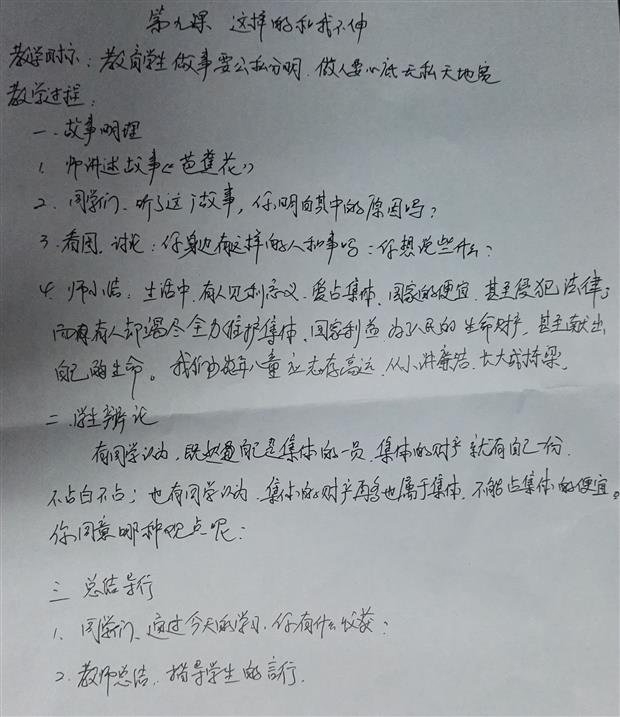 第九课 这样的私我不伸
教学目标：教育学生做事要公私分明，做人要心底无私天地宽
教学过程：
一.故事明理
1. 师讲述故事《芭蕉花》
2. 同学们、听了这个故事，你明白其中的原因吗？
3. 看图、讨论：你身边有这样的人和事吗？你想说些什么？
4. 师小结：生活中，有人见利忘义、爱占集体、国家的便宜，甚至侵犯法律；
而有人却竭尽全力维护集体、国家利益，为了人民的生命财产，甚至献出
自己的生命。我们少年儿童应志存高远，从小讲廉洁，长大成栋梁。
二.学生辩论
有同学认为，既然是集体的一员，集体的财产就有自己一份，
不占白不占；也有同学认为，集体的财产再多也属于集体，不能占集体的便宜。
你同意哪种观点呢？
三 总结导行
1. 同学们、通过今天的学习，你有什么收获？
2. 教师总结，指导学生的言行.